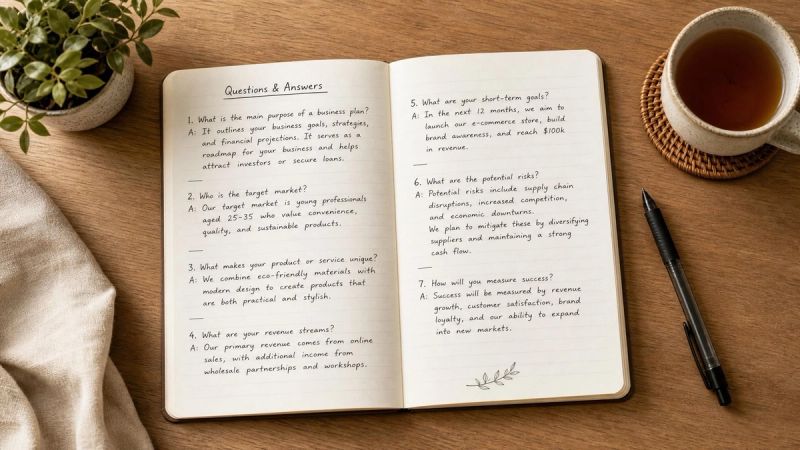 Questions & Answers
1. What is the main purpose of a business plan?
A: It outlines your business goals, strategies,
and financial projections. It serves as a
roadmap for your business and helps
attract investors or secure loans.
2. Who is the target market?
A: Our target market is young professionals
aged 25-35 who value convenience,
quality, and sustainable products.
3. What makes your product or service unique?
A: We combine eco-friendly materials with
modern design to create products that
are both practical and stylish.
4. What are your revenue streams?
A: Our primary revenue comes from online
sales, with additional income from
wholesale partnerships and workshops.
5. What are your short-term goals?
A: In the next 12 months, we aim to
launch our e-commerce store, build
brand awareness, and reach $100k
in revenue.
6. What are the potential risks?
A: Potential risks include supply chain
disruptions, increased competition,
and economic downturns.
We plan to mitigate these by diversifying
suppliers and maintaining a strong
cash flow.
7. How will you measure success?
A: Success will be measured by revenue
growth, customer satisfaction, brand
loyalty, and our ability to expand
into new markets.